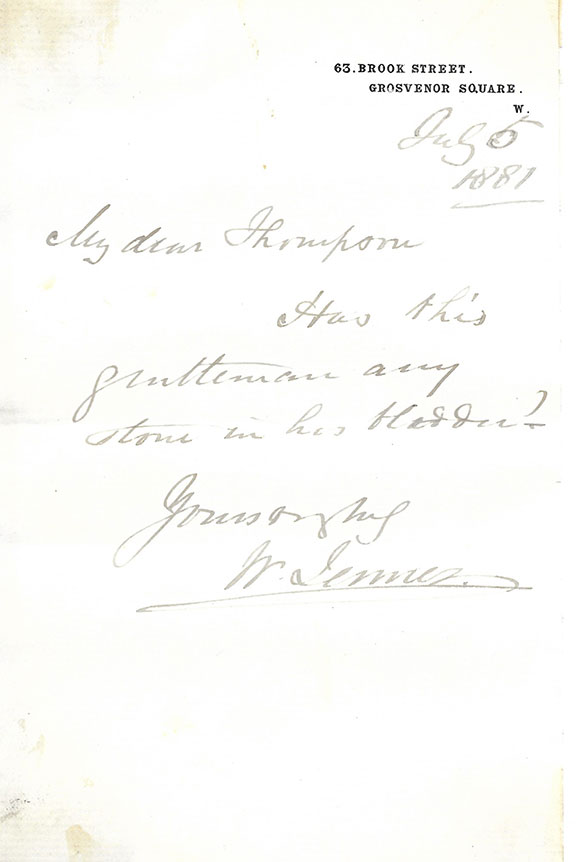 63. BROOK STREET.
GROSVENOR SQUARE.
W.
July 5
1881
My dear Thompson
Has this
gentleman any
stone in his bladder?
Yours
W. Jenner.